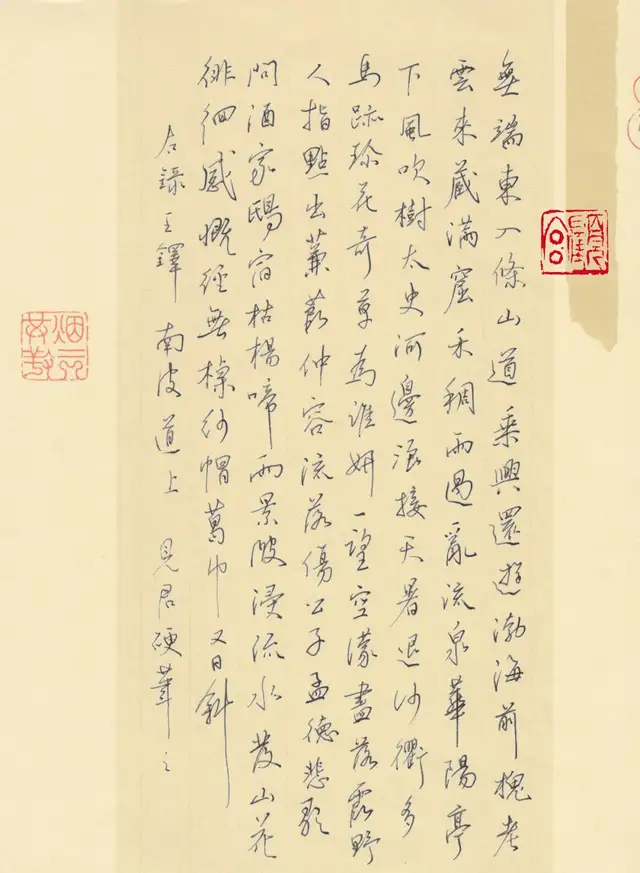 無端東入條山道乘興還遊渤海前槐老
雲来藏滿窟禾稠雨過亂流泉華陽亭
下風吹樹太史河邊浪接天暑退沙衢多
馬跡珍花奇草為誰妍一望空濛盡落霞野
人指點出蒹葭仲容流落傷公子孟德悲歌
問酒家鴟宿枯楊啼雨景陂浸流水發山花
徘徊感慨經無紗帽葛巾又日斜
右錄王鐸南皮道上 見君硬筆